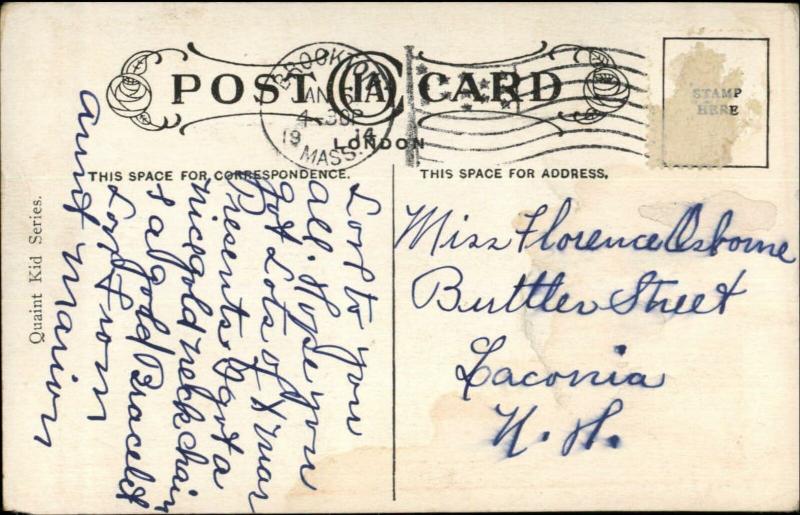 POST CARD
IA
LONDON
BROCKTON
JAN 6
4-30P
19 14
MASS.
STAMP
HERE
THIS SPACE FOR CORRESPONDENCE.
THIS SPACE FOR ADDRESS.
Quaint Kid Series.
Love to you
all. Hope you
got Lots of Xmas
Presents. I got a
nice gold neck chain
& a gold Bracelet
Love From
Aunt Marion
Miss Florence Osborne
Buttler Street
Laconia
N. H.